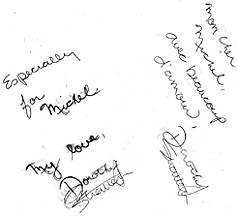 Especially
for Michel
My love,
Dorothy
mon cher
Michel,
avec beaucoup
d'amour,
Dorothy